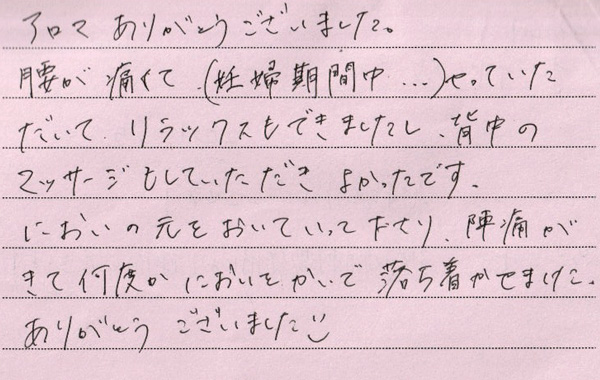 アロマ ありがとうございました。
腰が 痛くて、(妊婦期間中…)やっていた
だいて、リラックスもできましたし、背中の
マッサージもしていただき よかったです。
においの元をおいていって下さり、陣痛が
きて何度かにおいをかいで 落ち着かせました。
ありがとう ございました